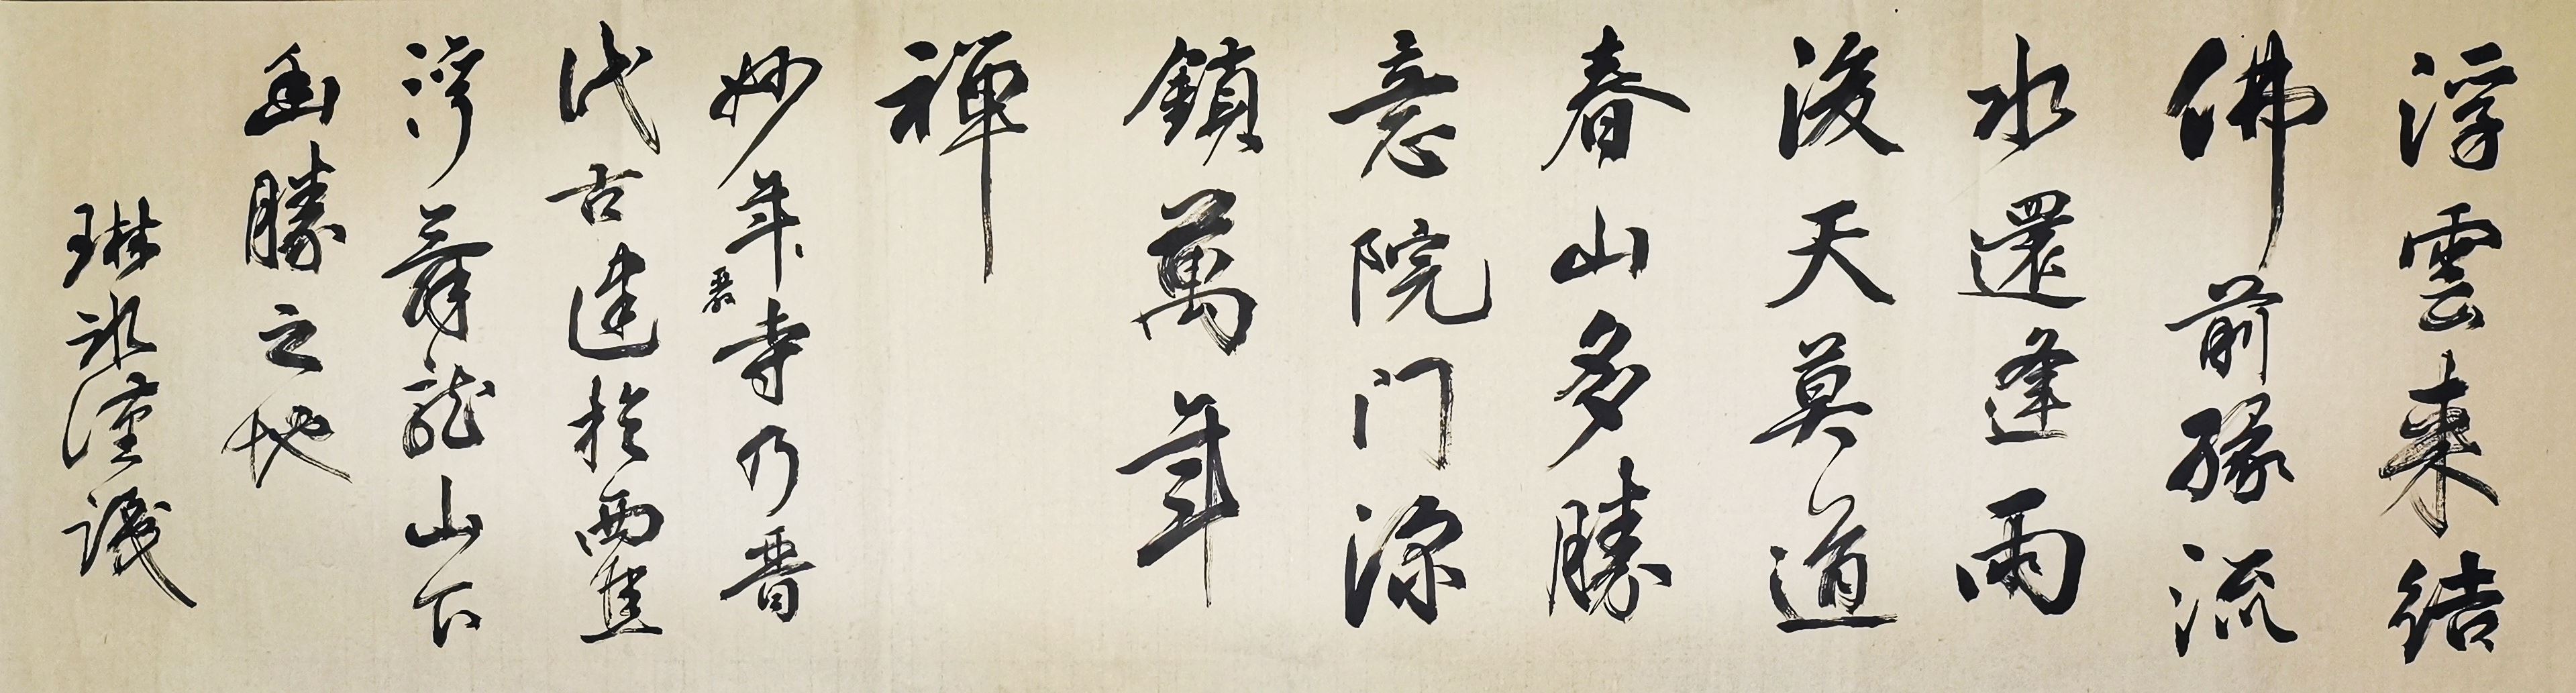 浮雲来结
佛前缘流
水還逢雨
後天莫道
春山多勝
意院门深
鎖萬年
禪
妙年嚴寺乃晋
代古建於西
湾舞龍山下
幽勝之地
琳冰謹識